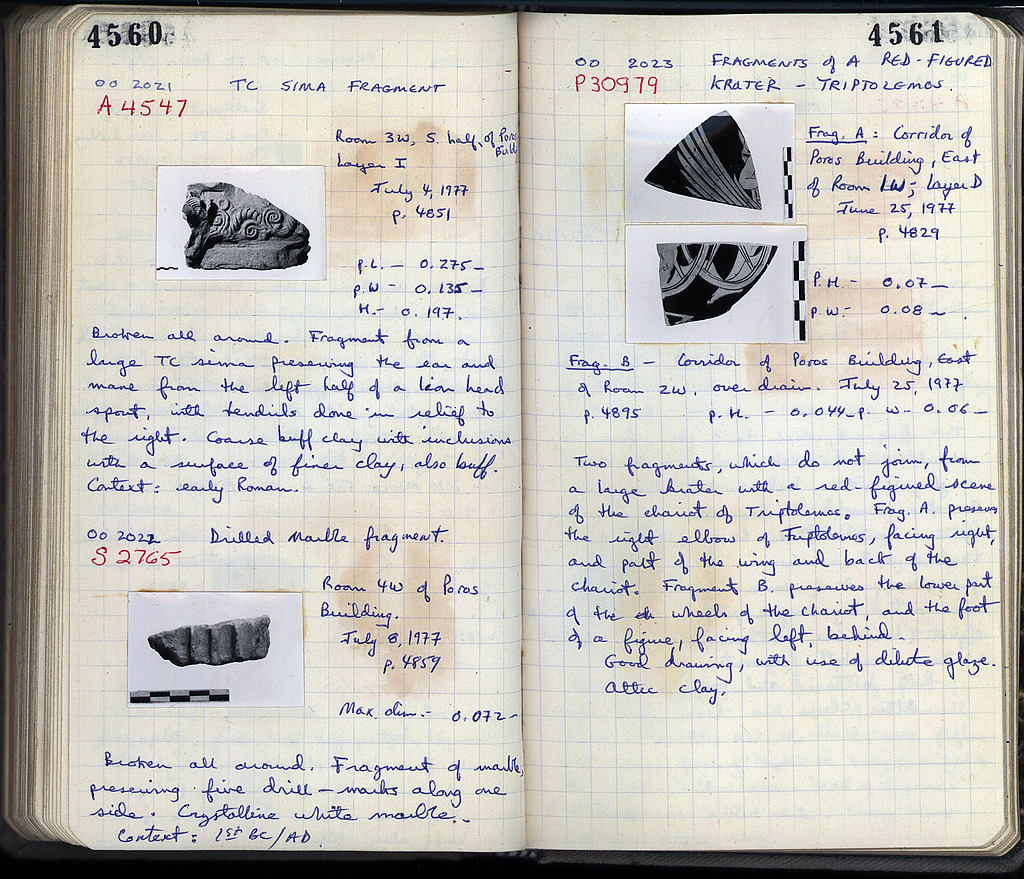 4560
OO 2021 TC SIMA FRAGMENT
A 4547
Room 3W, S. half, of Poros Build
Layer I
July 4, 1977
p. 4851
p.L. — 0.275 —
p.W — 0.135 —
H. — 0.197.
Broken all around. Fragment from a
large TC sima preserving the ear and
mane from the left half of a lion head
spout, with tendrils done in relief to
the right. Coarse buff clay with inclusions
with a surface of finer clay, also buff.
Context: early Roman.
OO 2022 Drilled Marble fragment.
S 2765
Room 4W of Poros
Building.
July 8, 1977
p. 4859
Max. dim. — 0.072 —
Broken all around. Fragment of marble,
preserving five drill-marks along one
side. Crystalline white marble.
Context: 1st BC/AD.
4561
OO 2023 FRAGMENTS of A RED-FIGURED
P 30979 KRATER — TRIPTOLEMOS.
Frag. A: Corridor of
Poros Building, East
of Room 1W; Layer D
June 25, 1977
p. 4829
P.H. — 0.07 —
p.W. — 0.08 — .
Frag. B — Corridor of Poros Building, East
of Room 2W, over drain. July 25, 1977
p. 4895 p.H. — 0.044 — p.W — 0.06 —
Two fragments, which do not join, from
a large krater with a red-figured scene
of the chariot of Triptolemos. Frag. A. preserves
the right elbow of Triptolemos, facing right,
and part of the wing and back of the
chariot. Fragment B. preserves the lower part
of the wheels of the chariot, and the foot
of a figure, facing left, behind.
Good drawing, with use of dilute glaze.
Attic clay.